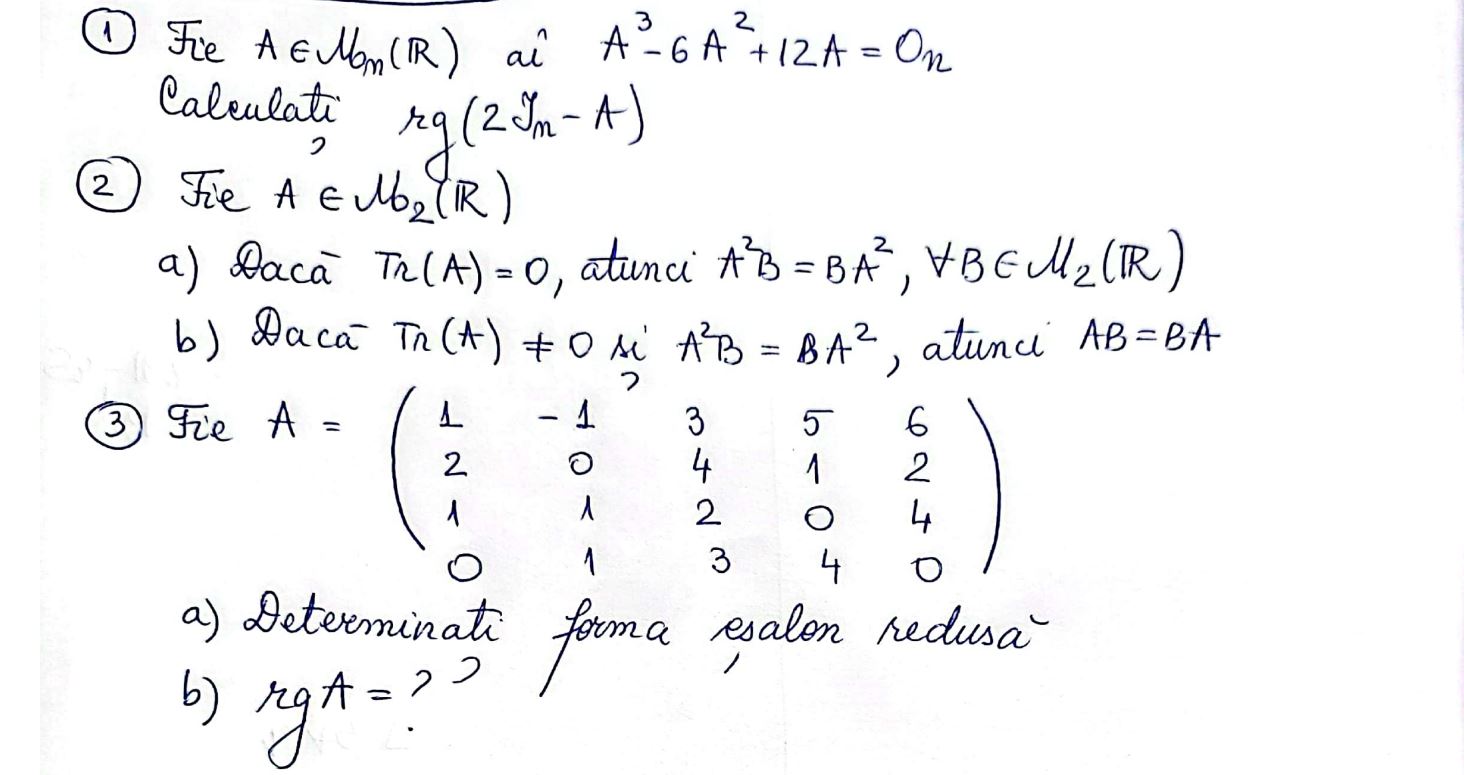 ① Fie A ∈ Mn(ℝ) aî A³ - 6A² + 12A = On
Calculați rg(2In - A)
② Fie A ∈ M2(ℝ)
a) Dacă Tr(A) = 0, atunci A²B = BA², ∀B ∈ M2(ℝ)
b) Dacă Tr(A) ≠ 0 și A²B = BA², atunci AB = BA
③ Fie A =
1 -1 3 5 6
2 0 4 1 2
1 1 2 0 4
0 1 3 4 0
a) Determinati forma eșalon redusă
b) rgA = ??